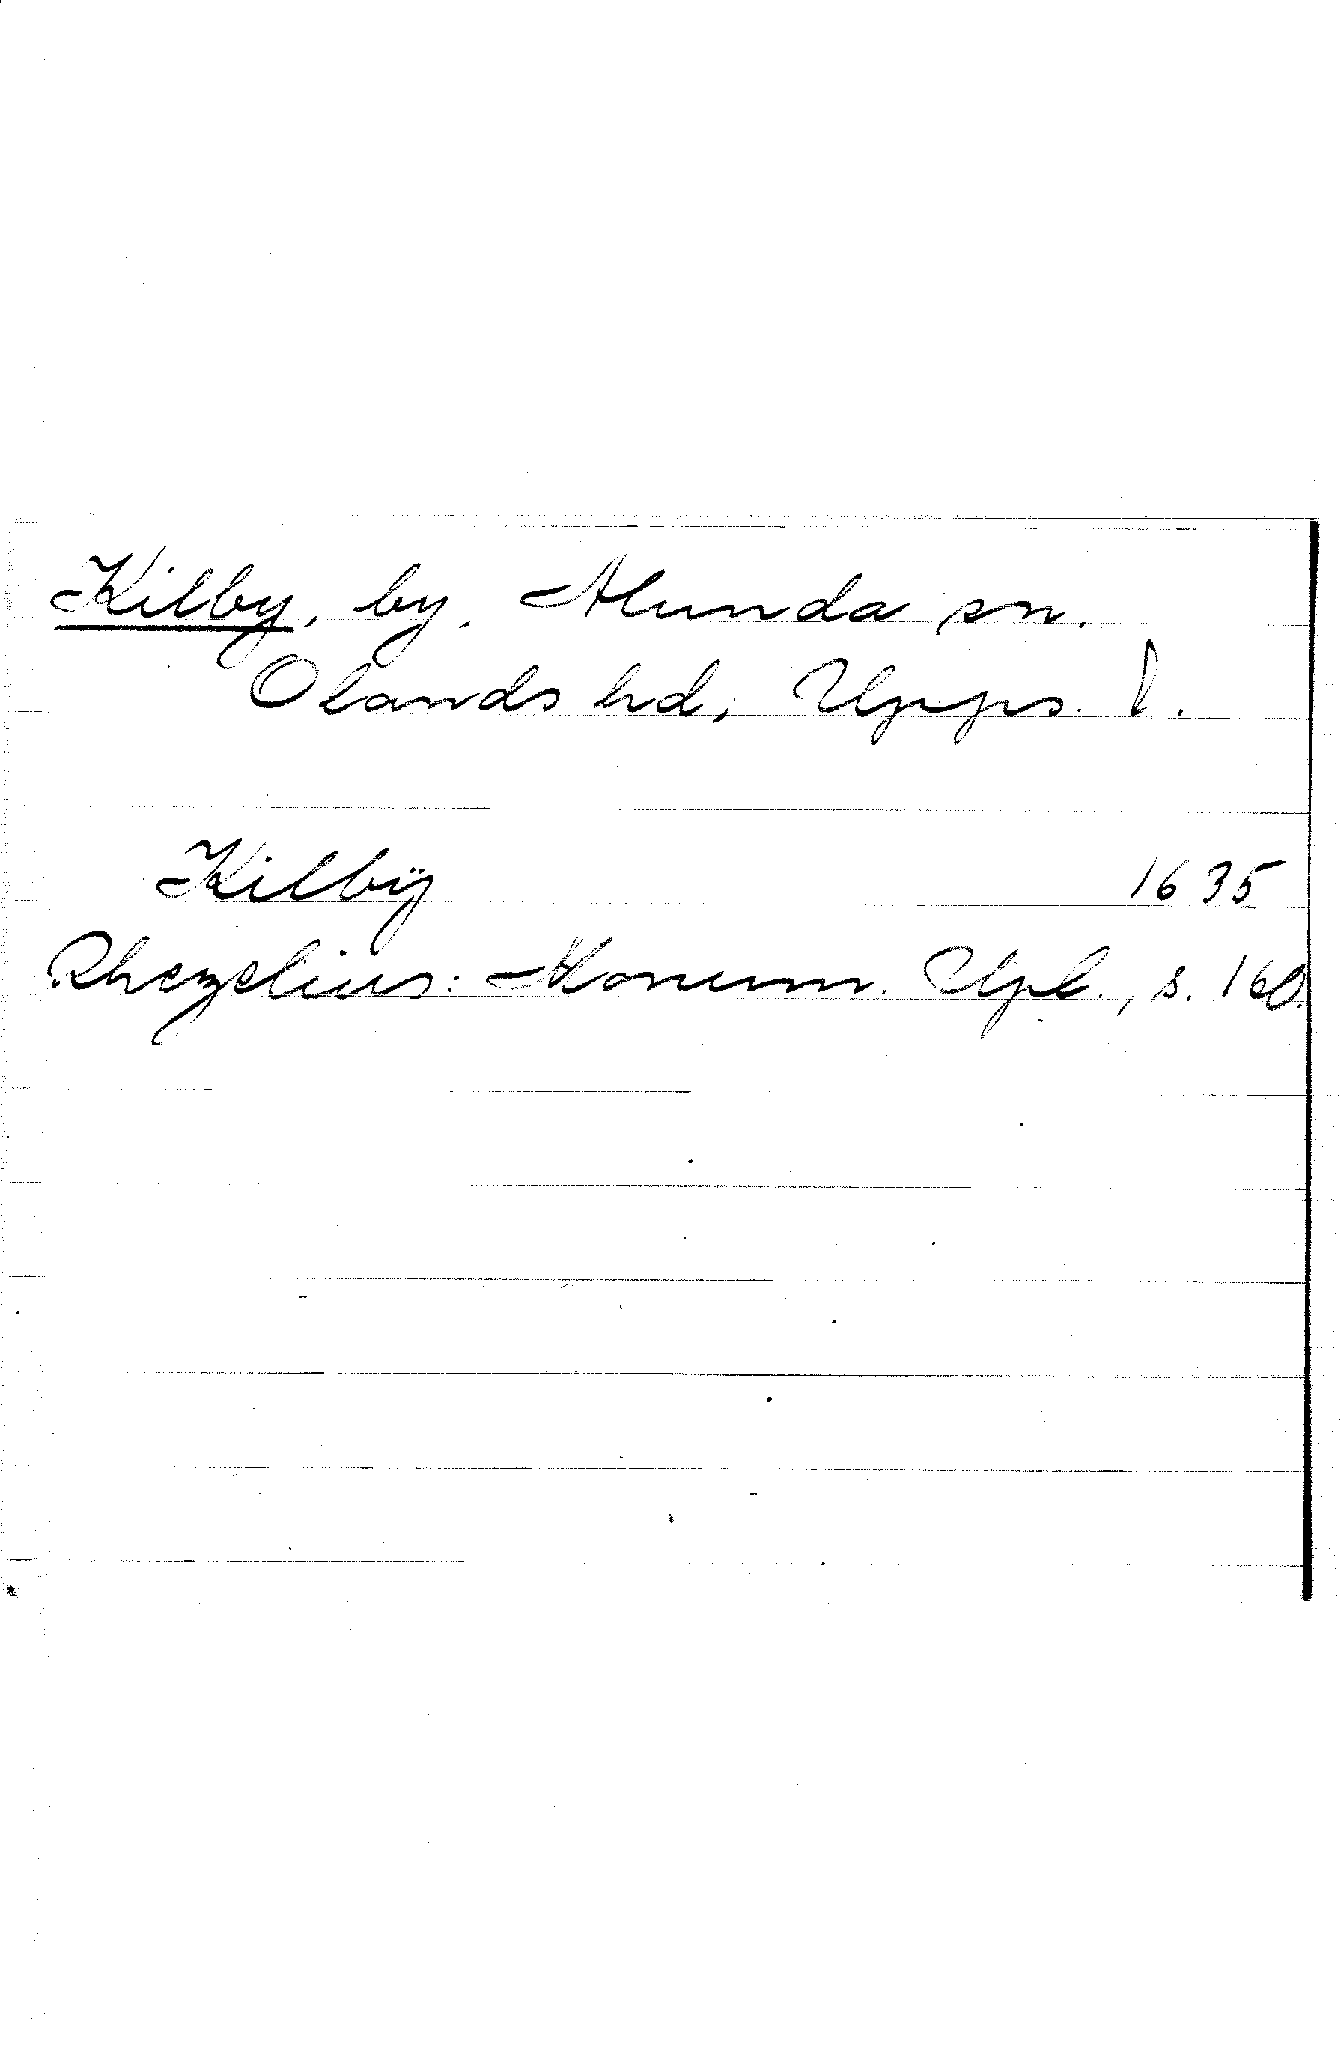 Kilby, by. Alunda sn.
Olands hd, Upps. l.
Kilbÿ 1635
Rhezelius: Monum. Upl., s. 160.